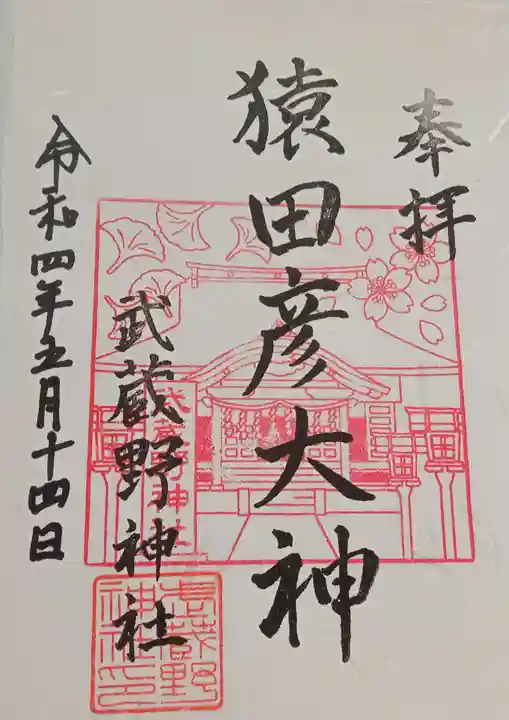 奉拝
猿田彦大神
武蔵野神社
武蔵野神社
武蔵野
神社印
令和四年五月十四日